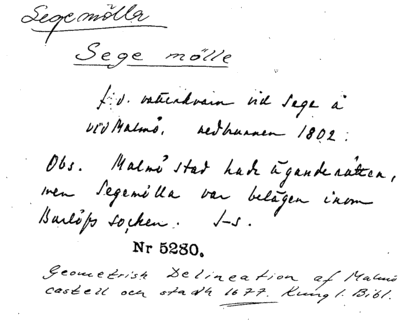 Segemölla
Sege mölle
f.d. vattenkvarn vid Sege å
vid Malmö. nedbrunnen 1802.
Obs. Malmö stad hade äganderätten,
men Segemölla var belägen inom
Burlöfs socken. S-s.
Nr 5280.
Geometrisk Delineation af Malmö
castell och stadh 1677. Kungl. Bibl.